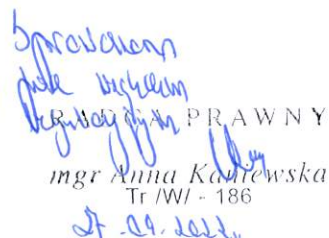 Sprawdzono
pod względem
RADCA PRAWNY
mgr Anna Kaniewska
Tr /W/ - 186
27.09.2022